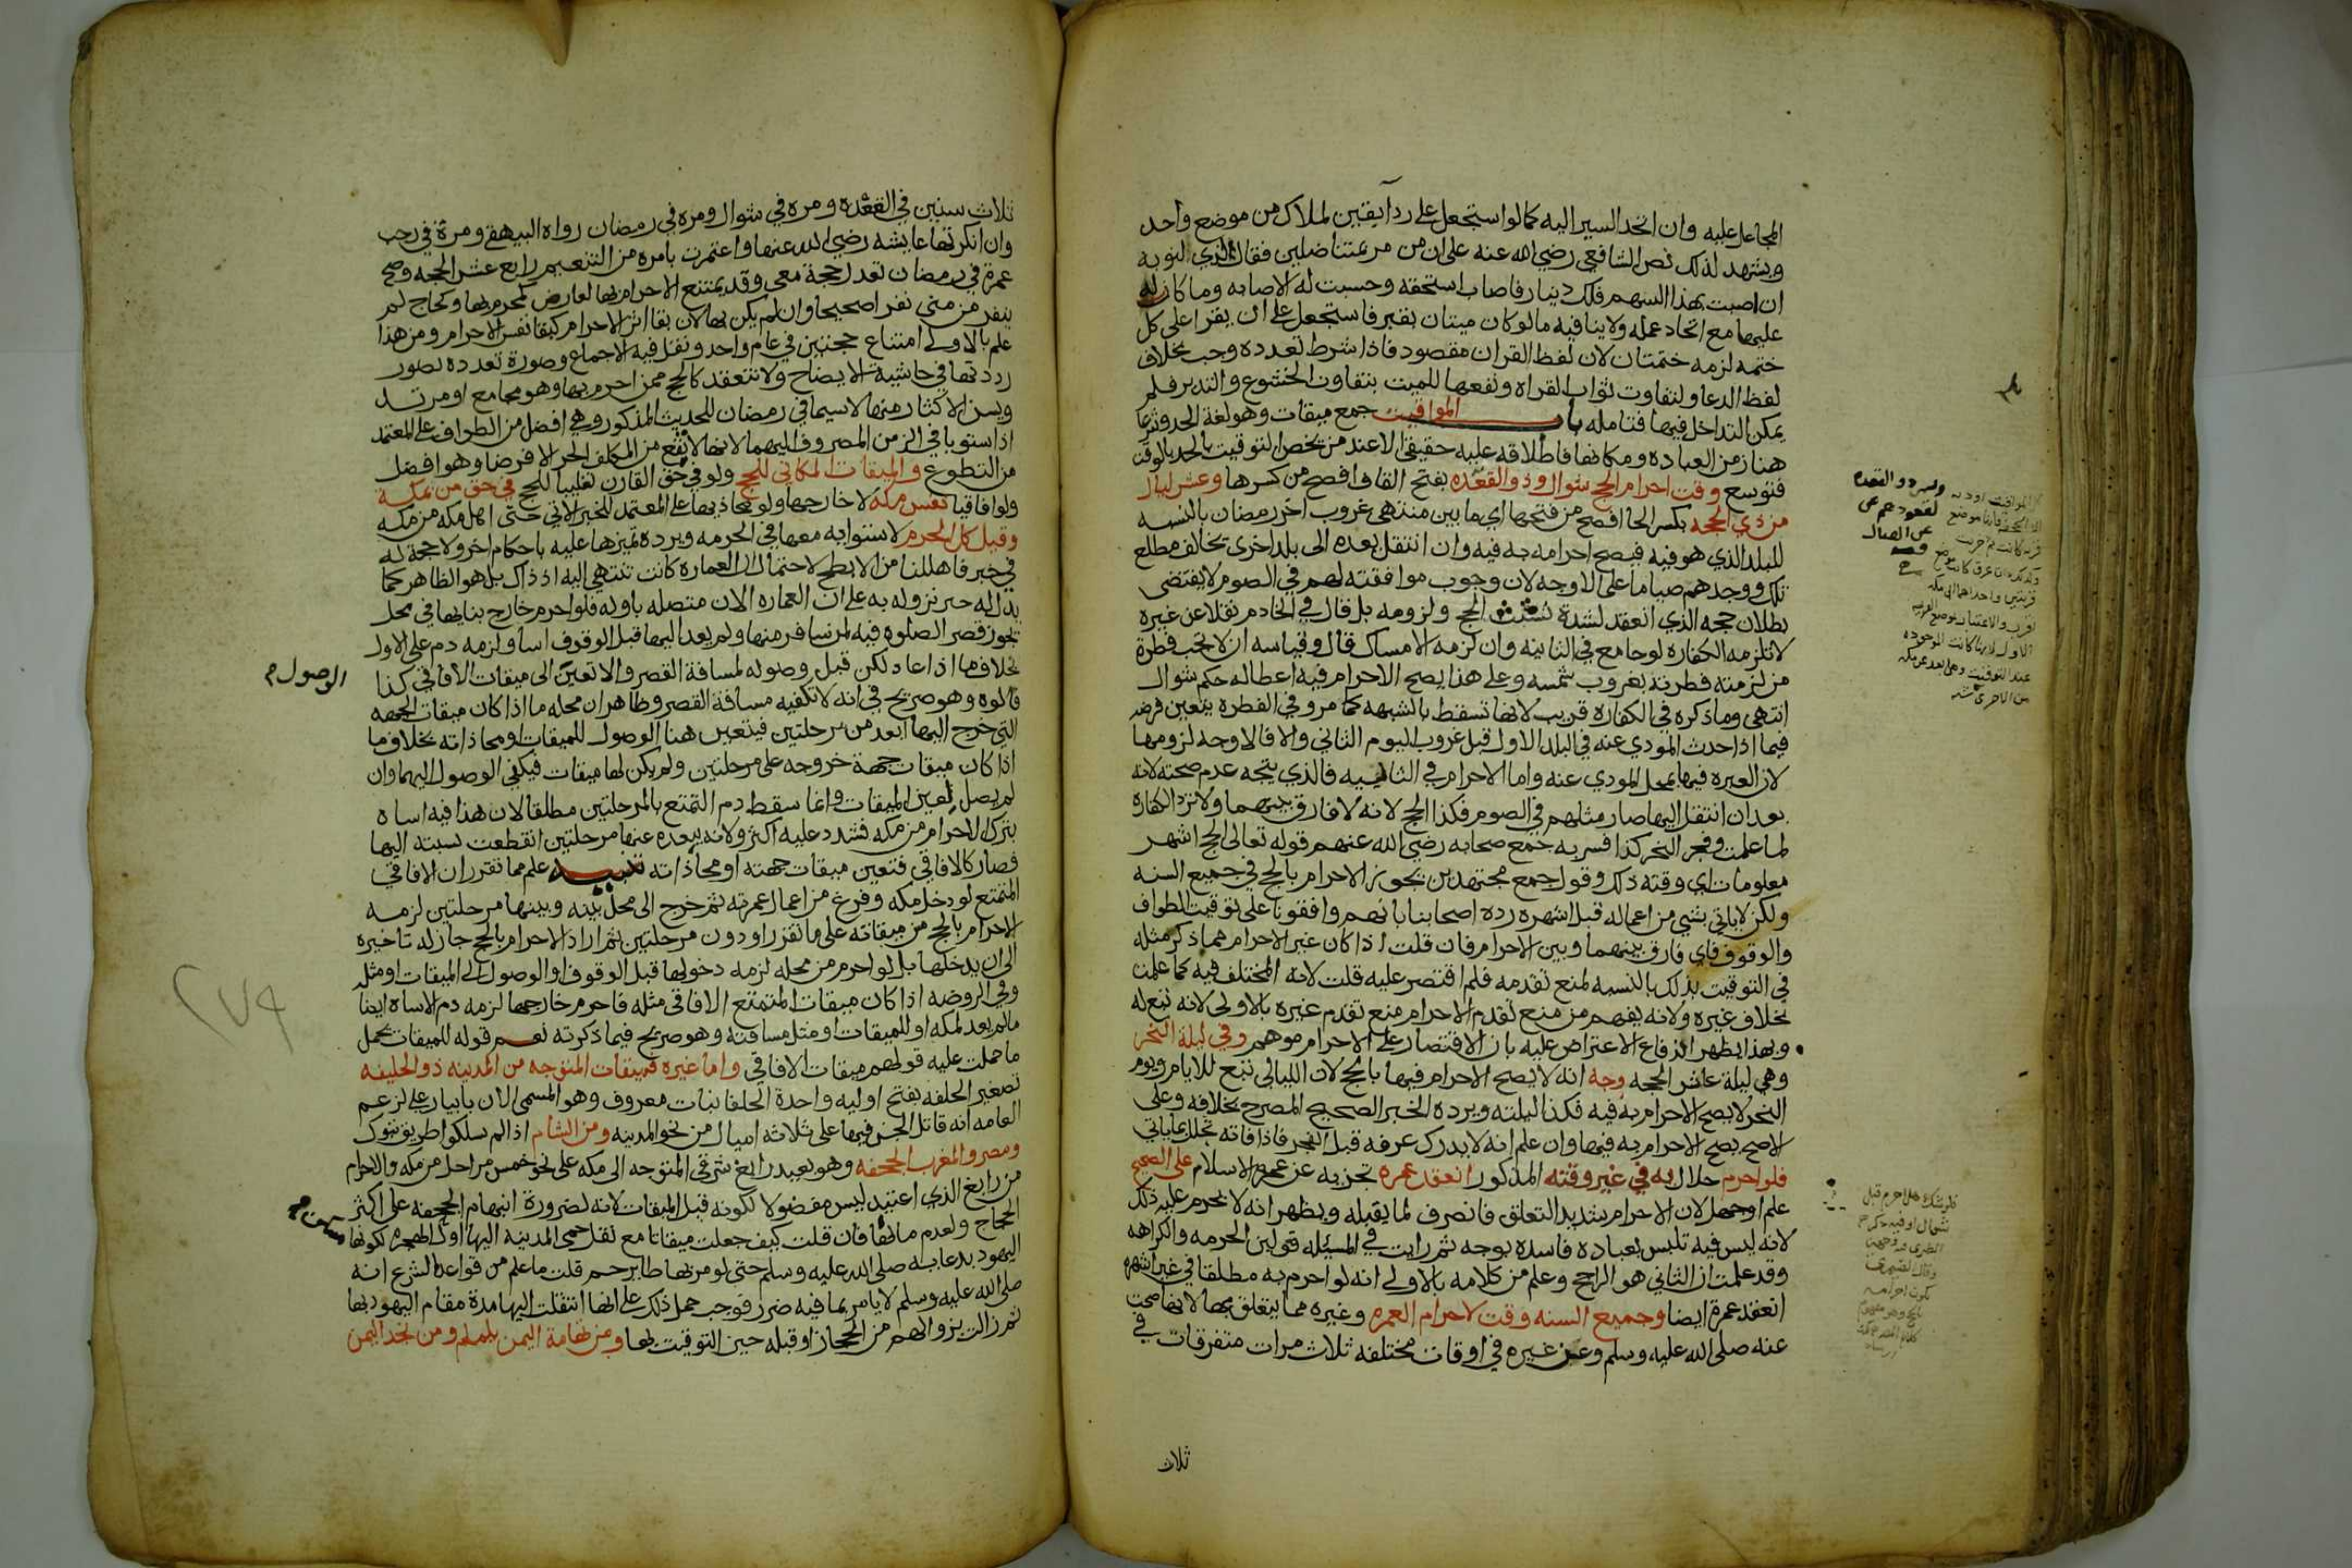 المجاعل عليه وان اتحد السير اليه كما لو استجعل على رد آبقين لملاك من موضع واحد
ويشهد لذلك نص الشافعي رضي الله عنه على ان من مر بمتناضلين فقال لذي النوبه
ان اصبت بهذا السهم فلك دينار فاصاب استحقه وحسبت له الاصابه وما كان له
عليها مع اتحاد عمله ولا ينافيه ما لو كان ميتان بقبر فاستجعل على ان يقرا على كل
ختمه لزمه ختمتان لان لفظ القران مقصود فاذا شرط تعدده وجب بخلاف
لفظ الدعا ولتفاوت ثواب القراه ونفعها للميت بتفاوت الخشوع والتدبر فلم
يمكن التداخل فيها فتامله باب المواقيت جمع ميقات وهو لغة الحد وشرعا
هنا زمن العباده ومكانها فاطلاقه عليه حقيقي الا عند من يخص التوقيت بالحد بالوقت
فتوسع وقت احرام الحج شوال وذو القعده بفتح القاف افصح من كسرها وعشر ليال
من ذي الحجه بكسر الحا افصح من فتحها اي ما بين منتهى غروب اخر رمضان بالنسبه
للبلد الذي هو فيه فيصح احرامه به فيه وان انتقل بعده الى بلد اخرى تخالف مطلع
تلك ووجدهم صياما على الاوجه لان وجوب موافقته لهم في الصوم لا يقتضى
بطلان حجه الذي انعقد لشدة تشبث الحج ولزومه بل قال في الخادم نقلا عن غيره
لا تلزمه الكفاره لو جامع في الثانيه وان لزمه الامساك قال وقياسه ان لا تجب فطرة
من لزمته فطرته بغروب شمسه وعلى هذا يصح الاحرام فيه اعطا له حكم شوال
انتهى وما ذكره في الكفاره قريب لانها تسقط بالشبهه كما مر وفي الفطره يتعين فرضه
فيما اذا حدث المودي عنه في البلد الاول قبل غروب اليوم الثاني والا فالاوجه لزومها
لان العبره فيها بمحل المودي عنه واما الاحرام في الثانيه فالذي يتجه عدم صحته لانه
بعد ان انتقل اليها صار مثلهم في الصوم فكذا الحج لانه لا فارق بينهما ولا ترد الكفاره
لما علمت وفجر النحر كذا فسر به جمع صحابه رضي الله عنهم قوله تعالى الحج اشهر
معلومات اي وقته ذلك وقول جمع مجتهدين بجواز الاحرام بالحج في جميع السنه
ولكن لا ياتي بشي من اعماله قبل اشهره رده اصحابنا بانهم وافقونا على توقيت الطواف
والوقوف فاي فارق بينهما وبين الاحرام فان قلت اذا كان غير الاحرام مما ذكر مثله
في التوقيت بذلك بالنسبه لمنع تقدمه فلم اقتصر عليه قلت لانه المختلف فيه كما علمت
بخلاف غيره ولانه يفهم من منع تقدم الاحرام منع تقدم غيره بالاولى لانه تبع له
وبهذا يظهر اندفاع الاعتراض عليه بان الاقتصار على الاحرام موهم وفي ليلة النحر
وهي ليلة عاشر الحجه وجه انه لا يصح الاحرام فيها بالحج لان الليالي تتبع للايام ويوم
النحر لا يصح الاحرام به فيه فكذا ليلته ويرده الخبر الصحيح المصرح بخلافه وعلى
الاصح يصح الاحرام به فيها وان علم انه لا يدرك عرفه قبل الفجر فاذا فاته تحلل بما ياتي
فلو احرم حلال به في غير وقته المذكور انعقد عمره تجزيه عن عمرة الاسلام على الصحيح
علم او جهل لان الاحرام شديد التعلق فانصرف لما يقبله ويظهر انه لا يحرم عليه ذلك
لانه ليس فيه تلبس بعباده فاسده بوجه ثم رايت في المسئله قولين الحرمه والكراهه
وقد علمت ان الثاني هو الراجح وعلم من كلامه بالاولى انه لو احرم به مطلقا في غير اشهره
انعقد عمرة ايضا وجميع السنه وقت لاحرام العمره وغيره مما يتعلق بها لانها صحت
عنه صلى الله عليه وسلم وعن غيره في اوقات مختلفه ثلاث مرات متفرقات في
ثلاث
وسمي ذو القعده
لقعودهم عن
عن القتال
ثلاث سنين في القعده ومره في شوال ومره في رمضان رواه البيهقي ومرة في رجب
وان انكرتها عايشه رضي الله عنها واعتمرت بامره من التنعيم رابع عشر الحجه وصح
عمرة في رمضان تعدل حجة معي وقد يمتنع الاحرام بها لعارض كمحرم بها وكحاج لم
ينفر من منى نفرا صحيحا وان لم يكن بها لان بقا اثر الاحرام كبقا نفس الاحرام ومن هذا
علم بالاولى امتناع حجتين في عام واحد ونقل فيه الاجماع وصورة تعدده تصور
رددتها في حاشية الايضاح ولا تنعقد كالحج ممن احرم بها وهو مجامع او مرتد
ويسن الاكثار منها لا سيما في رمضان للحديث المذكور وهي افضل من الطواف على المعتمد
اذا استويا في الزمن المصروف اليهما لانها لا تقع من المكلف الحر الا فرضا وهو افضل
من التطوع والميقات المكاني للحج ولو في حق القارن تغليبا للحج في حق من بمكة
ولو افاقيا نفس مكه لا خارجها ولو محاذيها على المعتمد للخبر الاتي حتى اهل مكه من مكه
وقيل كل الحرم لاستوابه معها في الحرمه ويرده تميزها عليه باحكام اخر ولا حجة له
في خبر فاهللنا من الابطح لاحتمال ان العماره كانت تنتهي اليه اذ ذاك بل هو الظاهر كما
يدل له خبر نزوله به على ان العماره الان متصله باوله فلو احرم خارج بنايها في محل
تجوز قصر الصلوه فيه لمن سافر منها ولم يعد اليها قبل الوقوف اسا ولزمه دم على الاول
بخلاف ما اذا عاد لكن قبل وصوله لمسافة القصر والا تعين الى ميقات الافاقي كذا
الوصول
قالوه وهو صريح في انه لا تكفيه مسافة القصر وظاهر ان محله ما اذا كان ميقات الجهه
التي خرج اليها ابعد من مرحلتين فيتعين هنا الوصول للميقات او محاذاته بخلاف ما
اذا كان ميقات جهة خروجه على مرحلتين ولم يكن لها ميقات فيكفي الوصول اليهما وان
لم يصل لعين الميقات وانما سقط دم التمتع بالمرحلتين مطلقا لان هذا فيه اساه
بترك الاحرام من مكه فشدد عليه اكثر ولانه ببعده عنها مرحلتين انقطعت نسبته اليها
فصار كالافاقي فتعين ميقات جهته او محاذاته تنبيه علم مما تقرر ان الافاقي
المتمتع لو دخل مكه وفرغ من اعمال عمرته ثم خرج الى محل بينه وبينها مرحلتين لزمه
الاحرام بالحج من ميقاته على ما تقرر او دون مرحلتين ثم اراد الاحرام بالحج جاز له تاخيره
الى ان يدخلها بل لو احرم من محله لزمه دخولها قبل الوقوف او الوصول الى الميقات او مثله
وفي الروضه اذا كان ميقات المتمتع الافاقي مثله فاحرم خارجها لزمه دم الاساه ايضا
ما لم يعد لمكه او للميقات او مثل مسافته وهو صريح فيما ذكرته نعم قوله للميقات يحمل
ما حملت عليه قولهم ميقات الافاقي واما غيره فميقات المتوجه من المدينه ذو الحليفه
تصغير الحلفه بفتح اوليه واحدة الحلفا نبات معروف وهو المسمى الان بابيار علي لزعم
العامه انه قاتل الجن فيها على ثلاثه اميال من نحو المدينه ومن الشام اذا لم يسلكوا طريق تبوك
ومصر والمغرب الجحفه وهو بعيد رابغ شرقي المتوجه الى مكه على نحو خمس مراحل من مكه والاحرام
من رابغ الذي اعتيد ليس مفضولا لكونه قبل الميقات لانه لضرورة انبهام الجحفه على اكثر
الحجاج ولعدم مائها فان قلت كيف جعلت ميقاتا مع نقل حمى المدينه اليها اول الهجره لكونها
اليهود بدعايه صلى الله عليه وسلم حتى لو مر بها طاير حم قلت ما علم من قواعد الشرع انه
صلى الله عليه وسلم لا يامر بما فيه ضرر فوجب حمل ذلك على انها انتقلت اليها مدة مقام اليهود بها
ثم زالت بزوالهم من الحجاز او قبله حين التوقيت بها ومن تهامة اليمن يلملم ومن نجد اليمن
٢٧٩